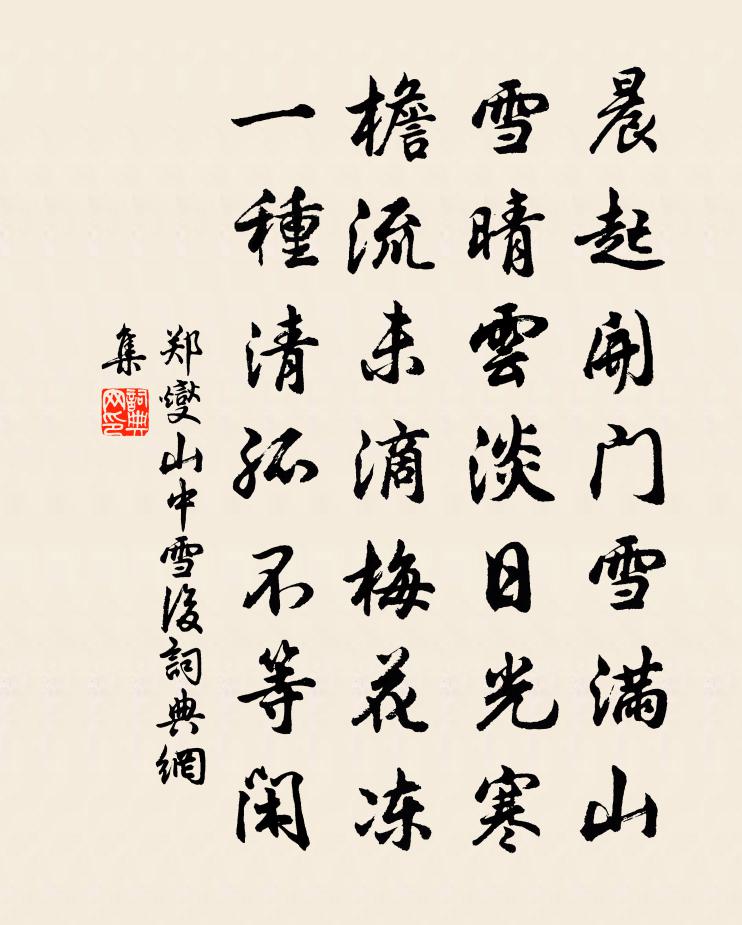 晨起開门雪满山
雪晴雲淡日光寒
檐流未滴梅花冻
一種清孤不等闲
郑燮山中雪後詞典網
集
詞典
网印